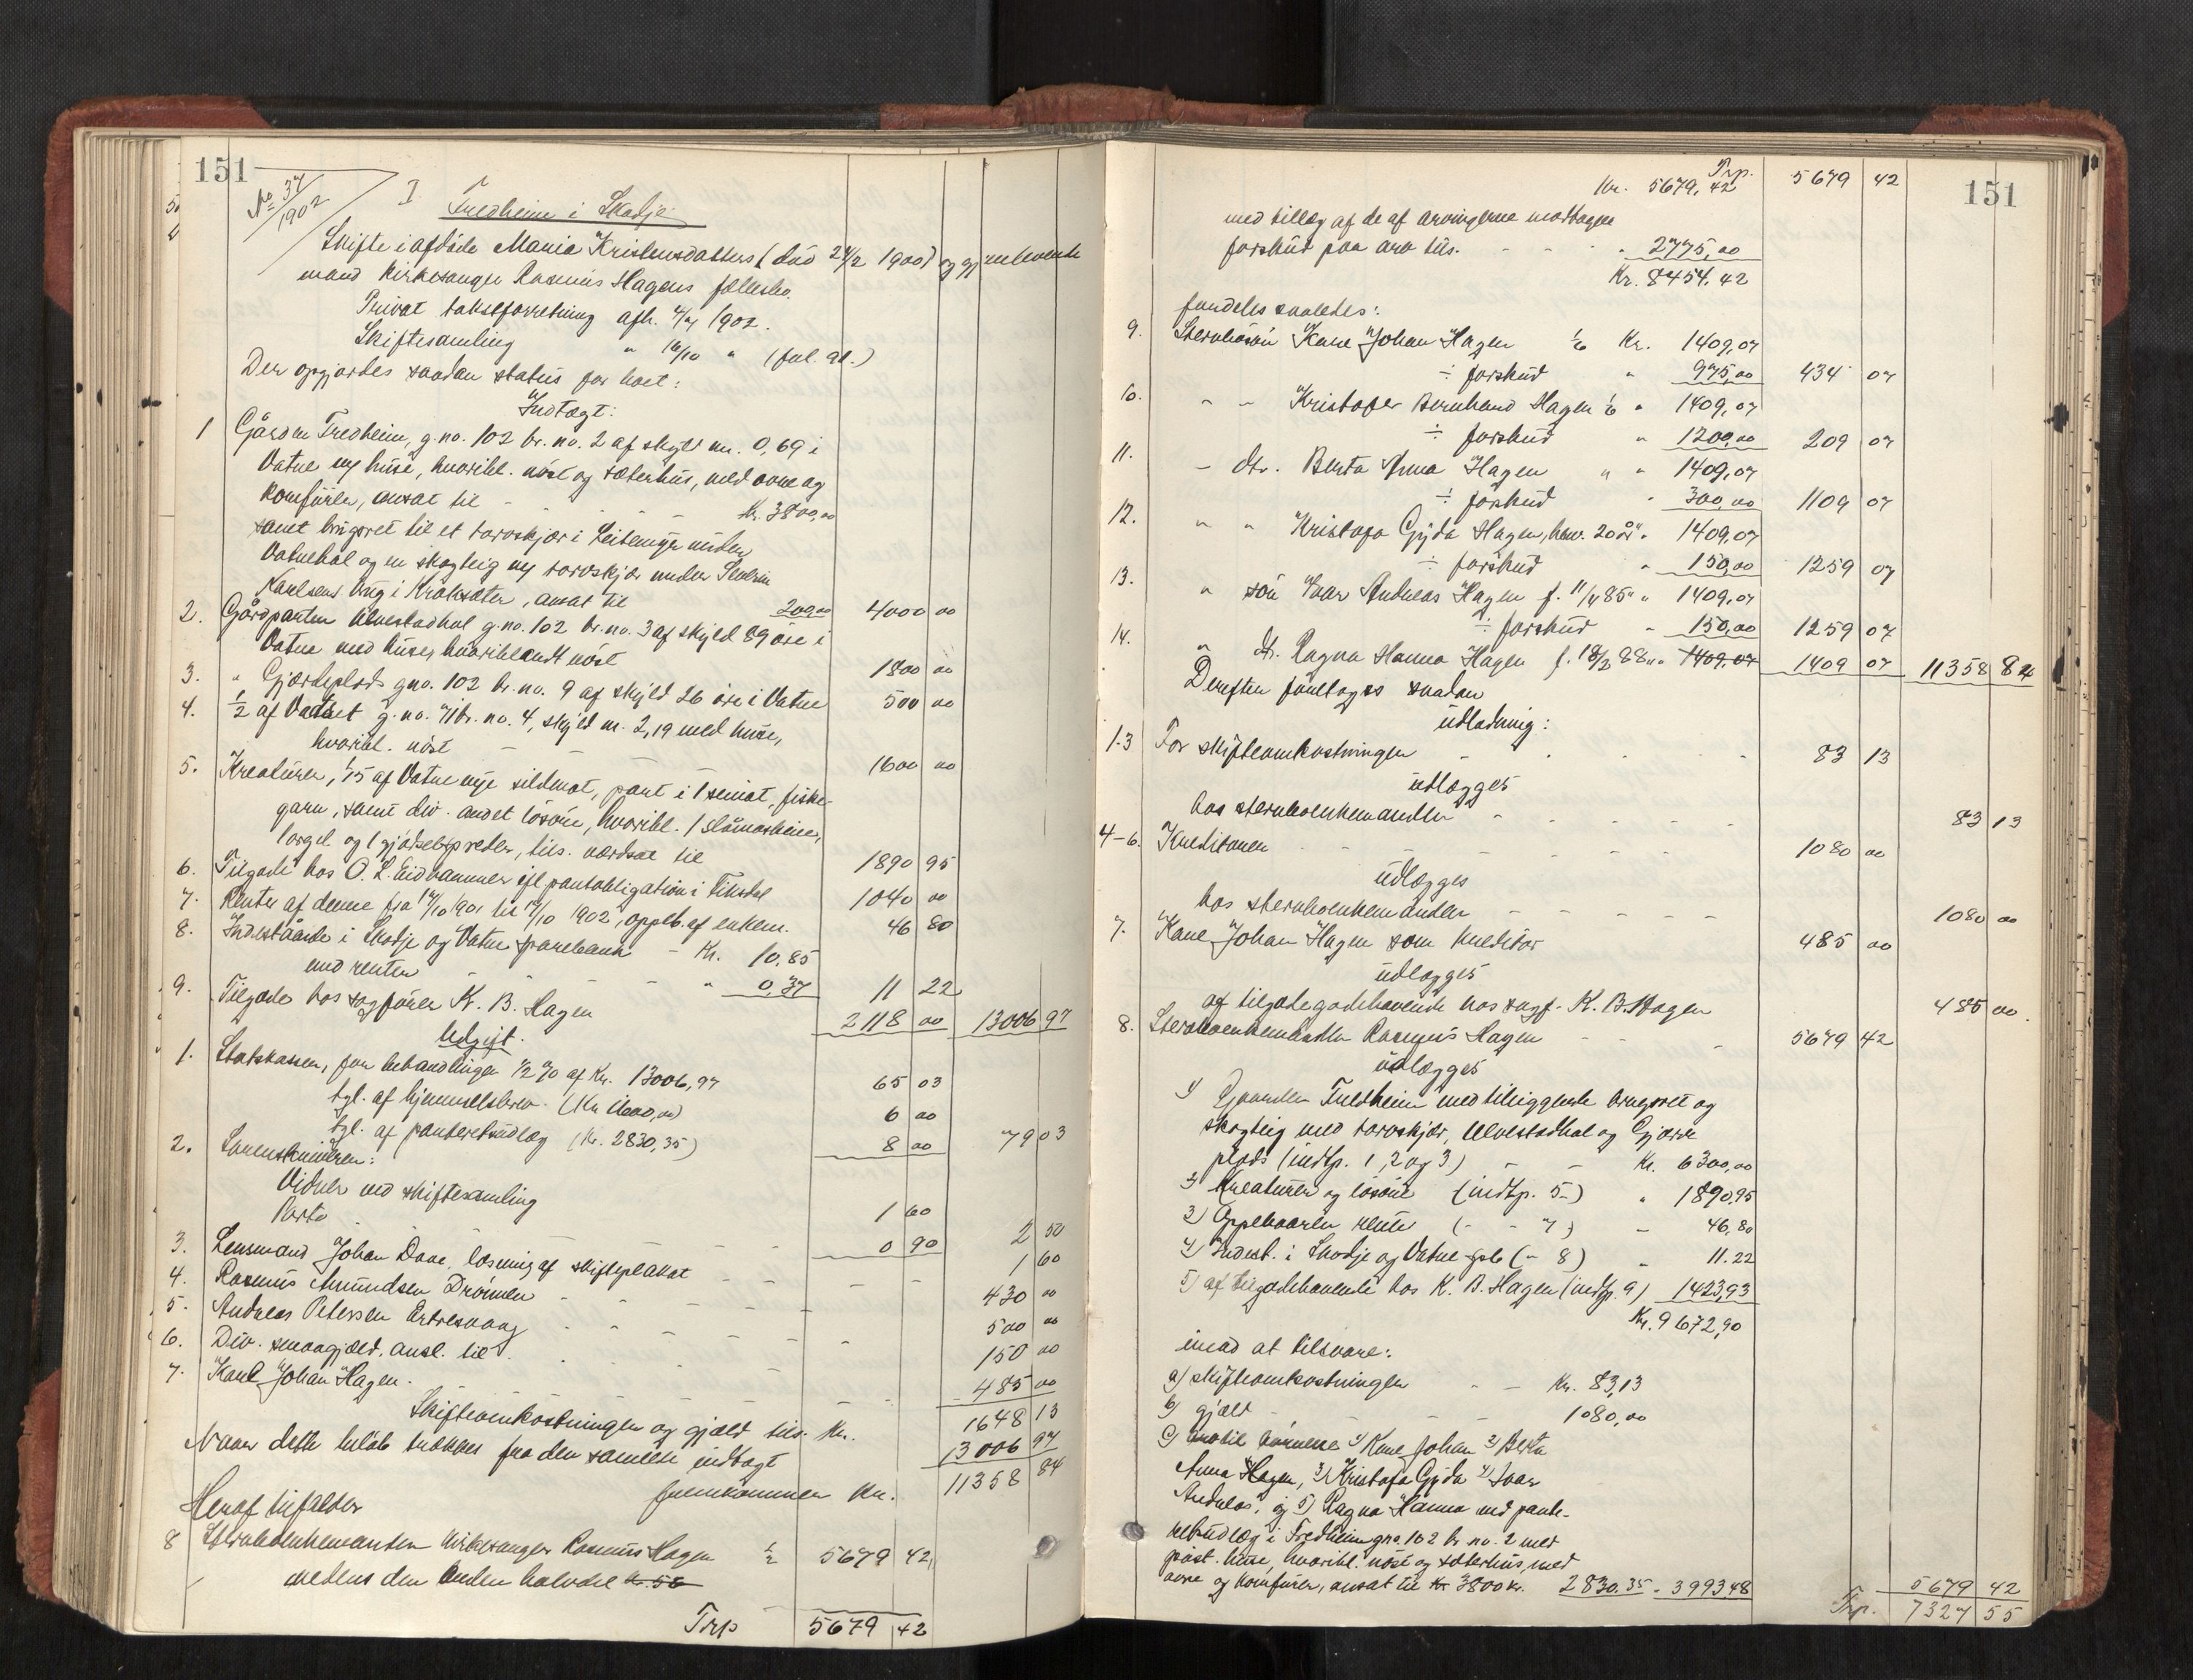 151
No 37/1902 I Fredheim i Skodje
Skifte i afdöde Maria Kristensdatters (död 24/2 1900) og gjenlevende
mand kirkesanger Rasmus Hagens fællesbo.
Privat takstforretning afh. 4/4 1902.
Skiftesamling " 16/10 " (fol. )
Der opgjordes saadan status for boet:
Indtægt:
1 Gården Fredheim, g.no. 102 br. no. 2 af skyld m. 0,69 i
Vatne m/ huse, hvoribl. nöst og sæterhus, med ovne og
komfurer, ansat til - - - - Kr. 3800,00
samt brugsret til et torvskjær i Leitemyr under
Vatnehol og en skogteig m/ torvskjær under Severin
Karlsens brug i Kroksæter, ansat til 200,00 4000 00
2. Gårdparten Ulvestadhol g.no. 102 br. no. 3 af skyld 89 öre i
Vatne med huse, hvoriblandt nöst 1800 00
3. " Gjærdeplads g.no. 102 br. no. 9 af skyld 26 öre i Vatne 500 00
4. 1/2 af Vadset g. no. 71 br. no. 4, skyld m. 2,19 med huse,
hvoribl. nöst - - - 1600 00
5. Kreaturer, 1/15 af Vatne nye sildenot, part i 1 seinot, fiske-
garn, samt div. andet lösöre, hvoribl. 1 slåmaskine,
1 orgel og 1 gjödselspreder, tils. værdsat til 1890 95
6. Tilgode hos O. L. Eidhammer ifl pantobligation i Fiksdal 1040 00
7. Renter af denne fra 14/10 1901 til 14/10 1902, oppeb. af enkem. 46 80
8. Indestående i Skodje og Vatne sparebank - Kr. 10,85
med renter - - - - " 0,37 11 22
9. Tilgode hos sagförer K. B. Hagen 2118 00 13006 97
Udgift.
1. Statskassen, for behandlingen 1/2 % af Kr. 13006,97 65 03
tgl. af hjemmelsbrev. (Kr 1600,00) 6 00
tgl. af panteretsudlæg (Kr. 2830,35) 8 00 79 03
2. Sorenskriveren:
Vidner ved skiftesamling 1 60
Porto - - - 0 90 2 50
3. Lensmand Johan Daae, læsning af skifteplakat - - 1 60
4. Rasmus Amundsen Drönnen - - - 430 00
5. Andreas Petersen - - - 500 00
6. Div. smaagjæld, ansl. til - - - 150 00
7. Karl Johan Hagen. - - - 485 00
Skifteomkostninger og gjæld tils. Kr. 1648 13
Naar dette belöb trækkes fra den samlede indtægt 13006 97
fremkommer Kr. 11358 84
Heraf tilfalder
8 Stervboenkemanden kirkesanger Rasmus Hagen 1/2 5679 42
medens den anden halvdel Kr. 56
Trsp 5679 42
151
Trsp.
Kr. 5679,42 5679 42
med tillæg af de af arvingerne modtagne
forskud paa arv tils. - - - " 2775,00
Kr. 8454,42
fordeles saaledes:
9. Stervbosön Karl Johan Hagen 1/6 Kr. 1409,07
÷ forskud " 975,00 434 07
10. " " Kristofer Bernhard Hagen 1/6 " 1409,07
÷ forskud " 1200,00 209 07
11. " dtr. Berta Anna Hagen " " 1409,07
÷ forskud " 300,00 1109 07
12. " " Kristofa Gyda Hagen, henv. 20 år " 1409,07
÷ forskud " 150,00 1259 07
13. " sön Ivar Andreas Hagen f. 11/4 85 " " 1409,07
÷ forskud " 150,00 1259 07
14. " dtr. Ragna Hanna Hagen f. 18/3 88 " " 1409,07 1409 07 11358 84
Derefter foretoges saadan
udlodning:
1-3 For skifteomkostninger - - - 83 13
udlægges
hos stervboenkemanden - - - 83 13
4-6. Kreditorer - - - 1080 00
udlægges
hos stervboenkemanden - - - 1080 00
7. Karl Johan Hagen som kreditor 485 00
udlægges
af tilgodehavende hos sagf. K. B. Hagen 485 00
8. Stervboenkemanden Rasmus Hagen - - 5679 42
udlægges
1) Gaarden Fredheim med tilliggende brugsret og
skogteig med torvskjær, Ulvestadhol og Gjærde
plads (indtp. 1, 2 og 3) - - Kr. 6300,00
2) Kreaturer og lösöre (indtp. 5) " 1890,95
3) Oppebaaren rente ( " - 7) - 46,80
4) Indest. i Skodje og Vatne spb (" 8) " 11.22
5) af tilgodehavende hos K. B. Hagen (indtp. 9) 1423,93
Kr. 9672,90
imod at tilsvare:
a) skifteomkostninger - - Kr. 83,13
b) gjæld - - - 1080,00
c) börnene 1) Karl Johan 2) Berta
Anna Hagen, 3) Kristofa Gyda 4) Ivar
Andreas, og 5) Ragna Hanna med pante-
retsudlæg i Fredheim gno. 102 br. no. 2 med
paast. huse, hvoribl. nöst og sæterhus, med
ovne og komfurer, ansat til kr 3800 kr. 2830.35 - 3993,48 5679 42
Trsp. 7327 55